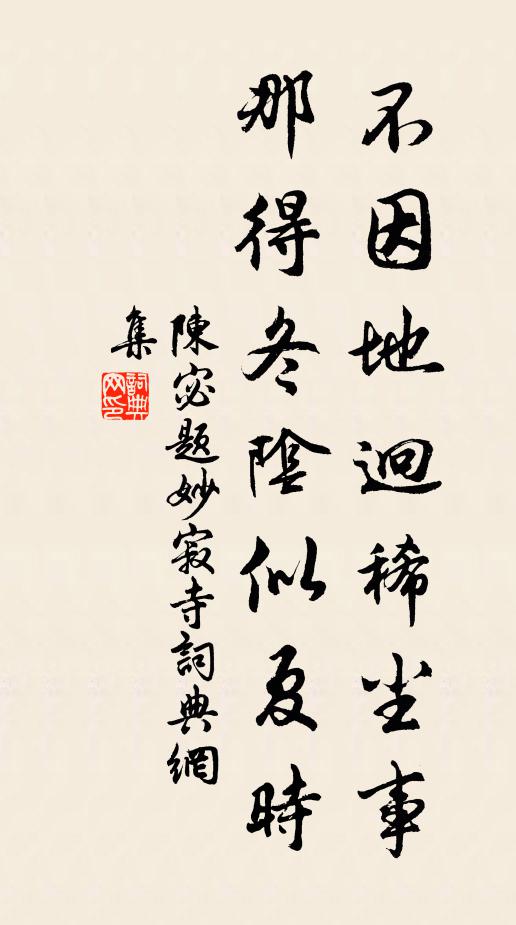 不因地迥稀尘事
那得冬陰似夏時
陳宓題妙寂寺詞典網
集
詞典网印